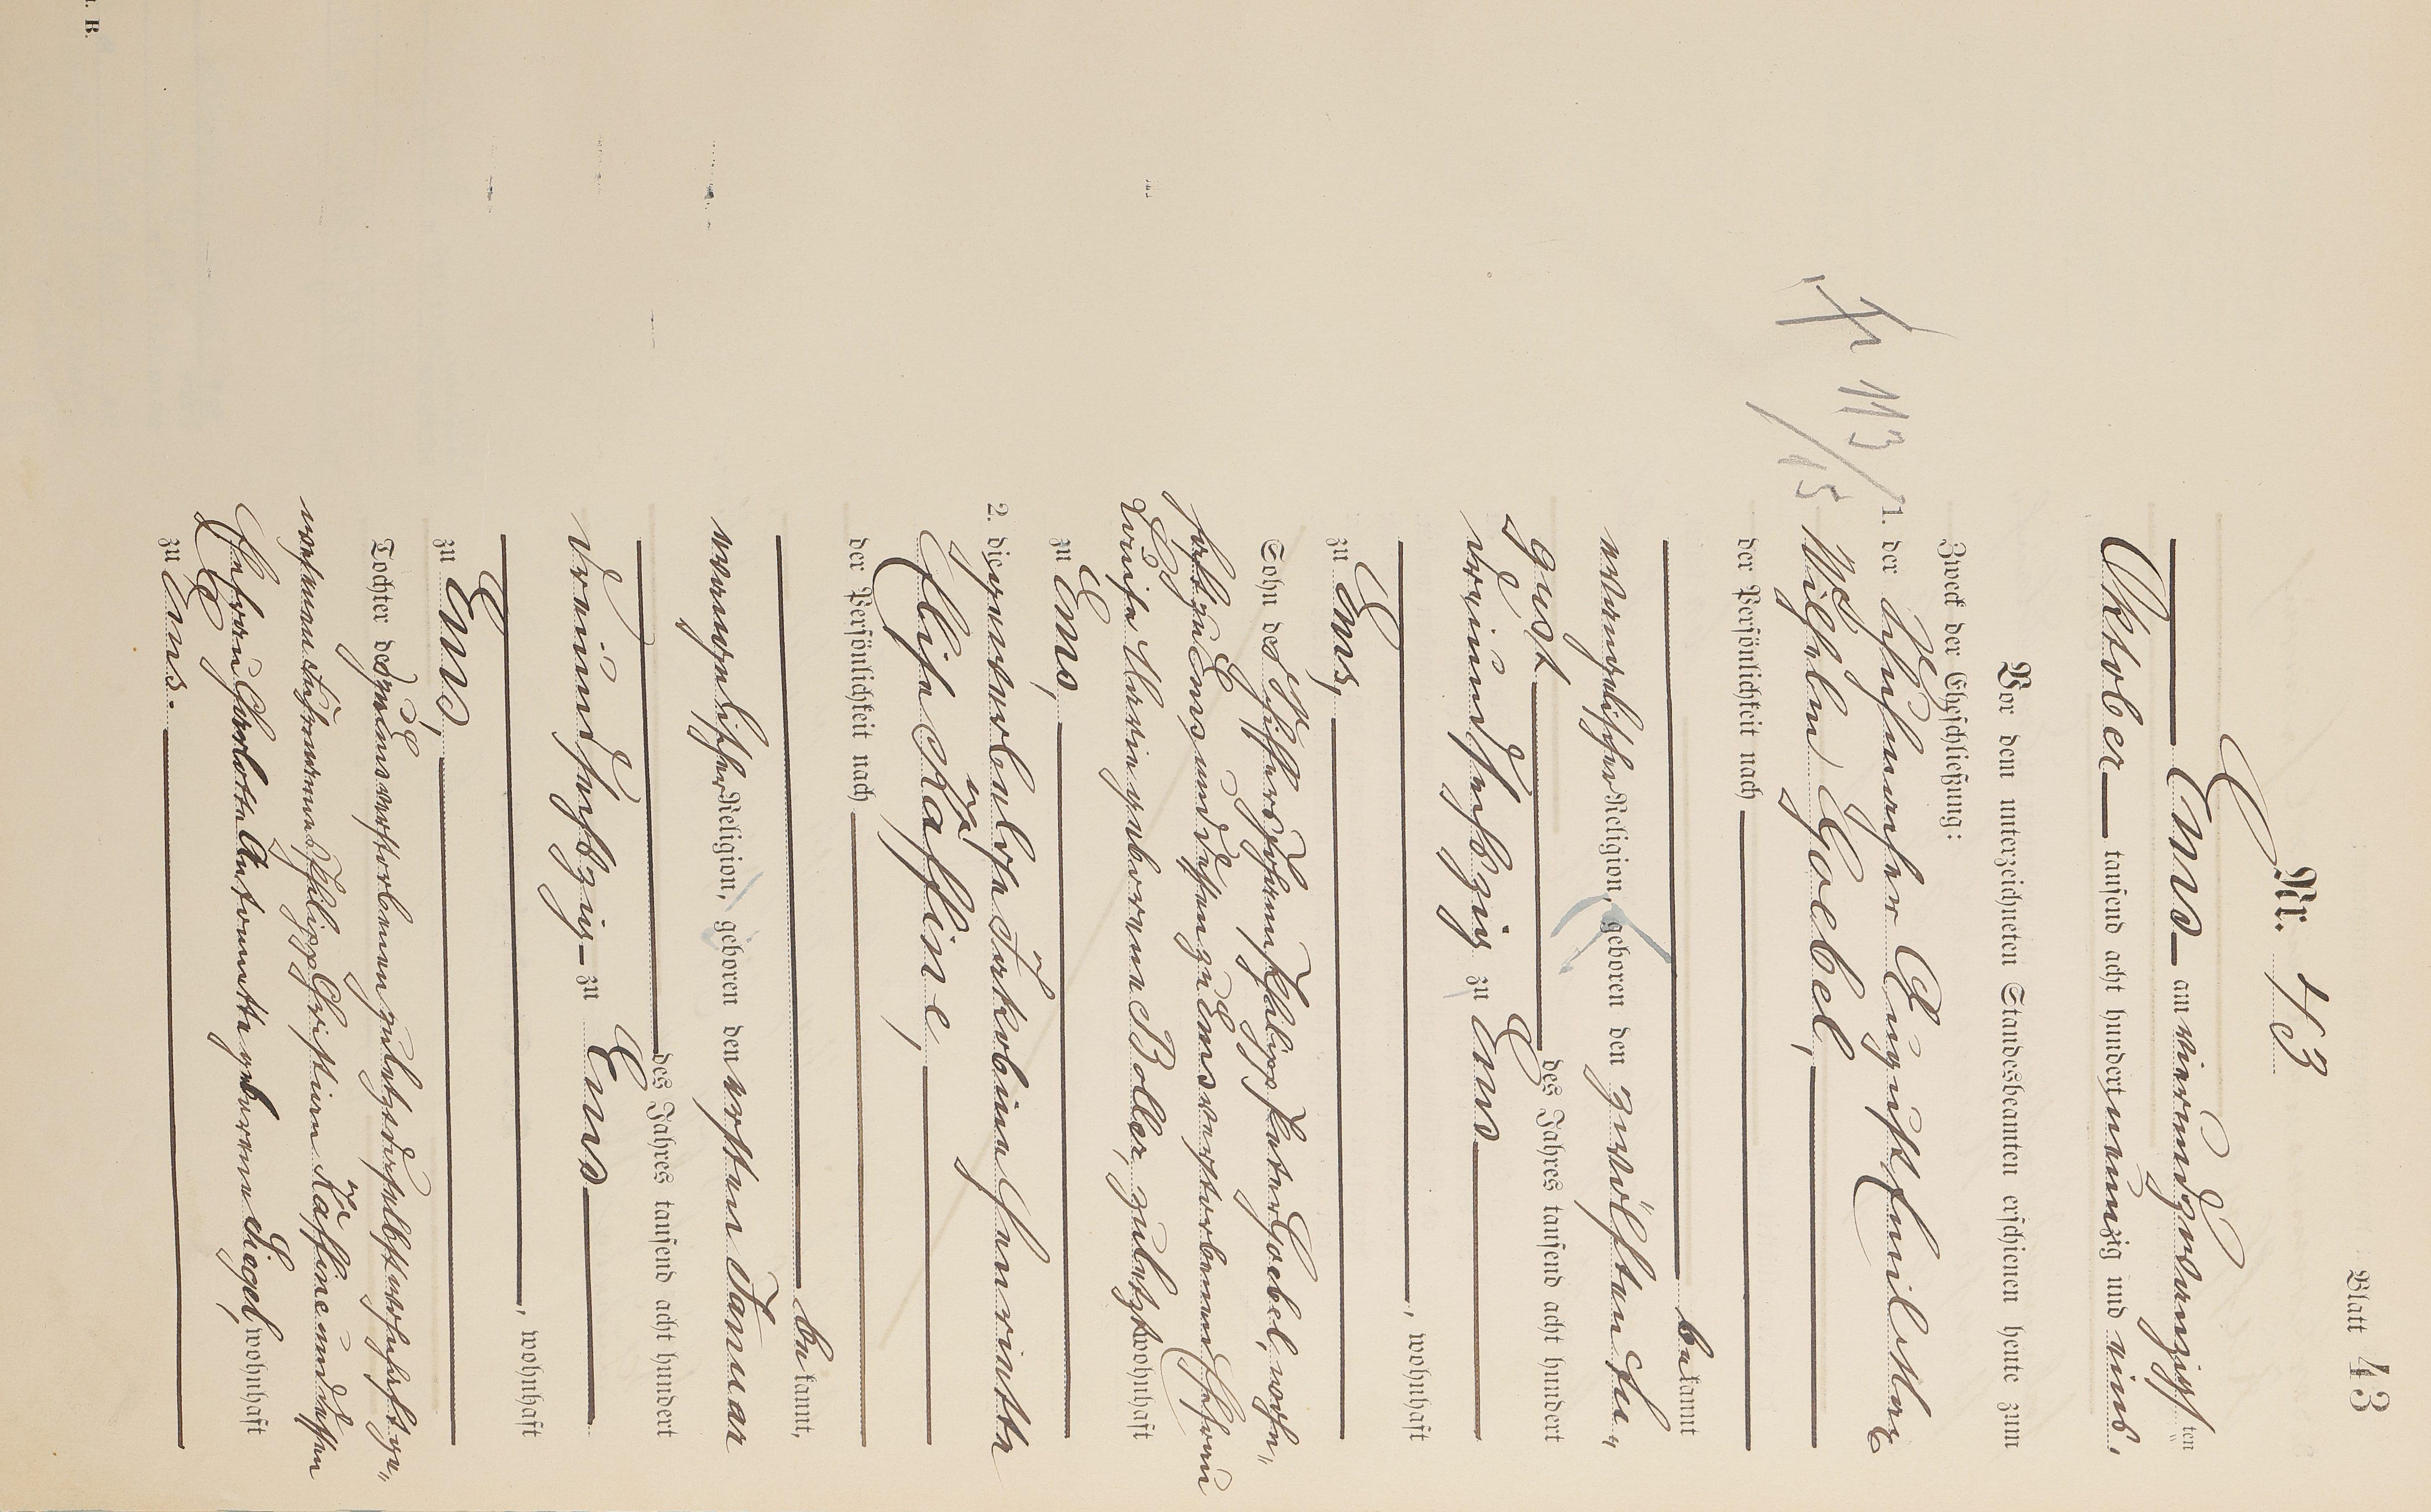 Blatt 43
Nr. 43
Ems am vierundzwanzigsten
Oktober tausend acht hundert neunzig und eins.
Vor dem unterzeichneten Standesbeamten erschienen heute zum
Zweck der Eheschließung:
1. der Schuhmacher August Emil Max
Wilhelm Goebel,
der Persönlichkeit nach
bekannt
evangelischer Religion, geboren den zwölften Au-
gust des Jahres tausend acht hundert
vreiundsechszig zu Ems
, wohnhaft
zu Ems,
Sohn des Schiffers Johann Philipp Peter Goebel, wohn-
haft zu Ems und dessen zu Ems verstorbenen Ehefrau
Louise Marie geborenen Boller, zuletzt wohnhaft
zu Ems,
2. die gewerbelose Jakobine Henriette
Elise Käffine,
der Persönlichkeit nach
bekannt,
evangelischer Religion, geboren den ersten Januar
des Jahres tausend acht hundert
vreiundsechszig zu Ems
, wohnhaft
zu Ems,
Tochter des zu Ems verstorbenen zuletzt daselbst wohnhaft ge-
wesenen Philipp Christian Käffine und dessen
Ehefrau Charlotte Antonette geborene Siegel, wohnhaft
zu Ems.
113/15